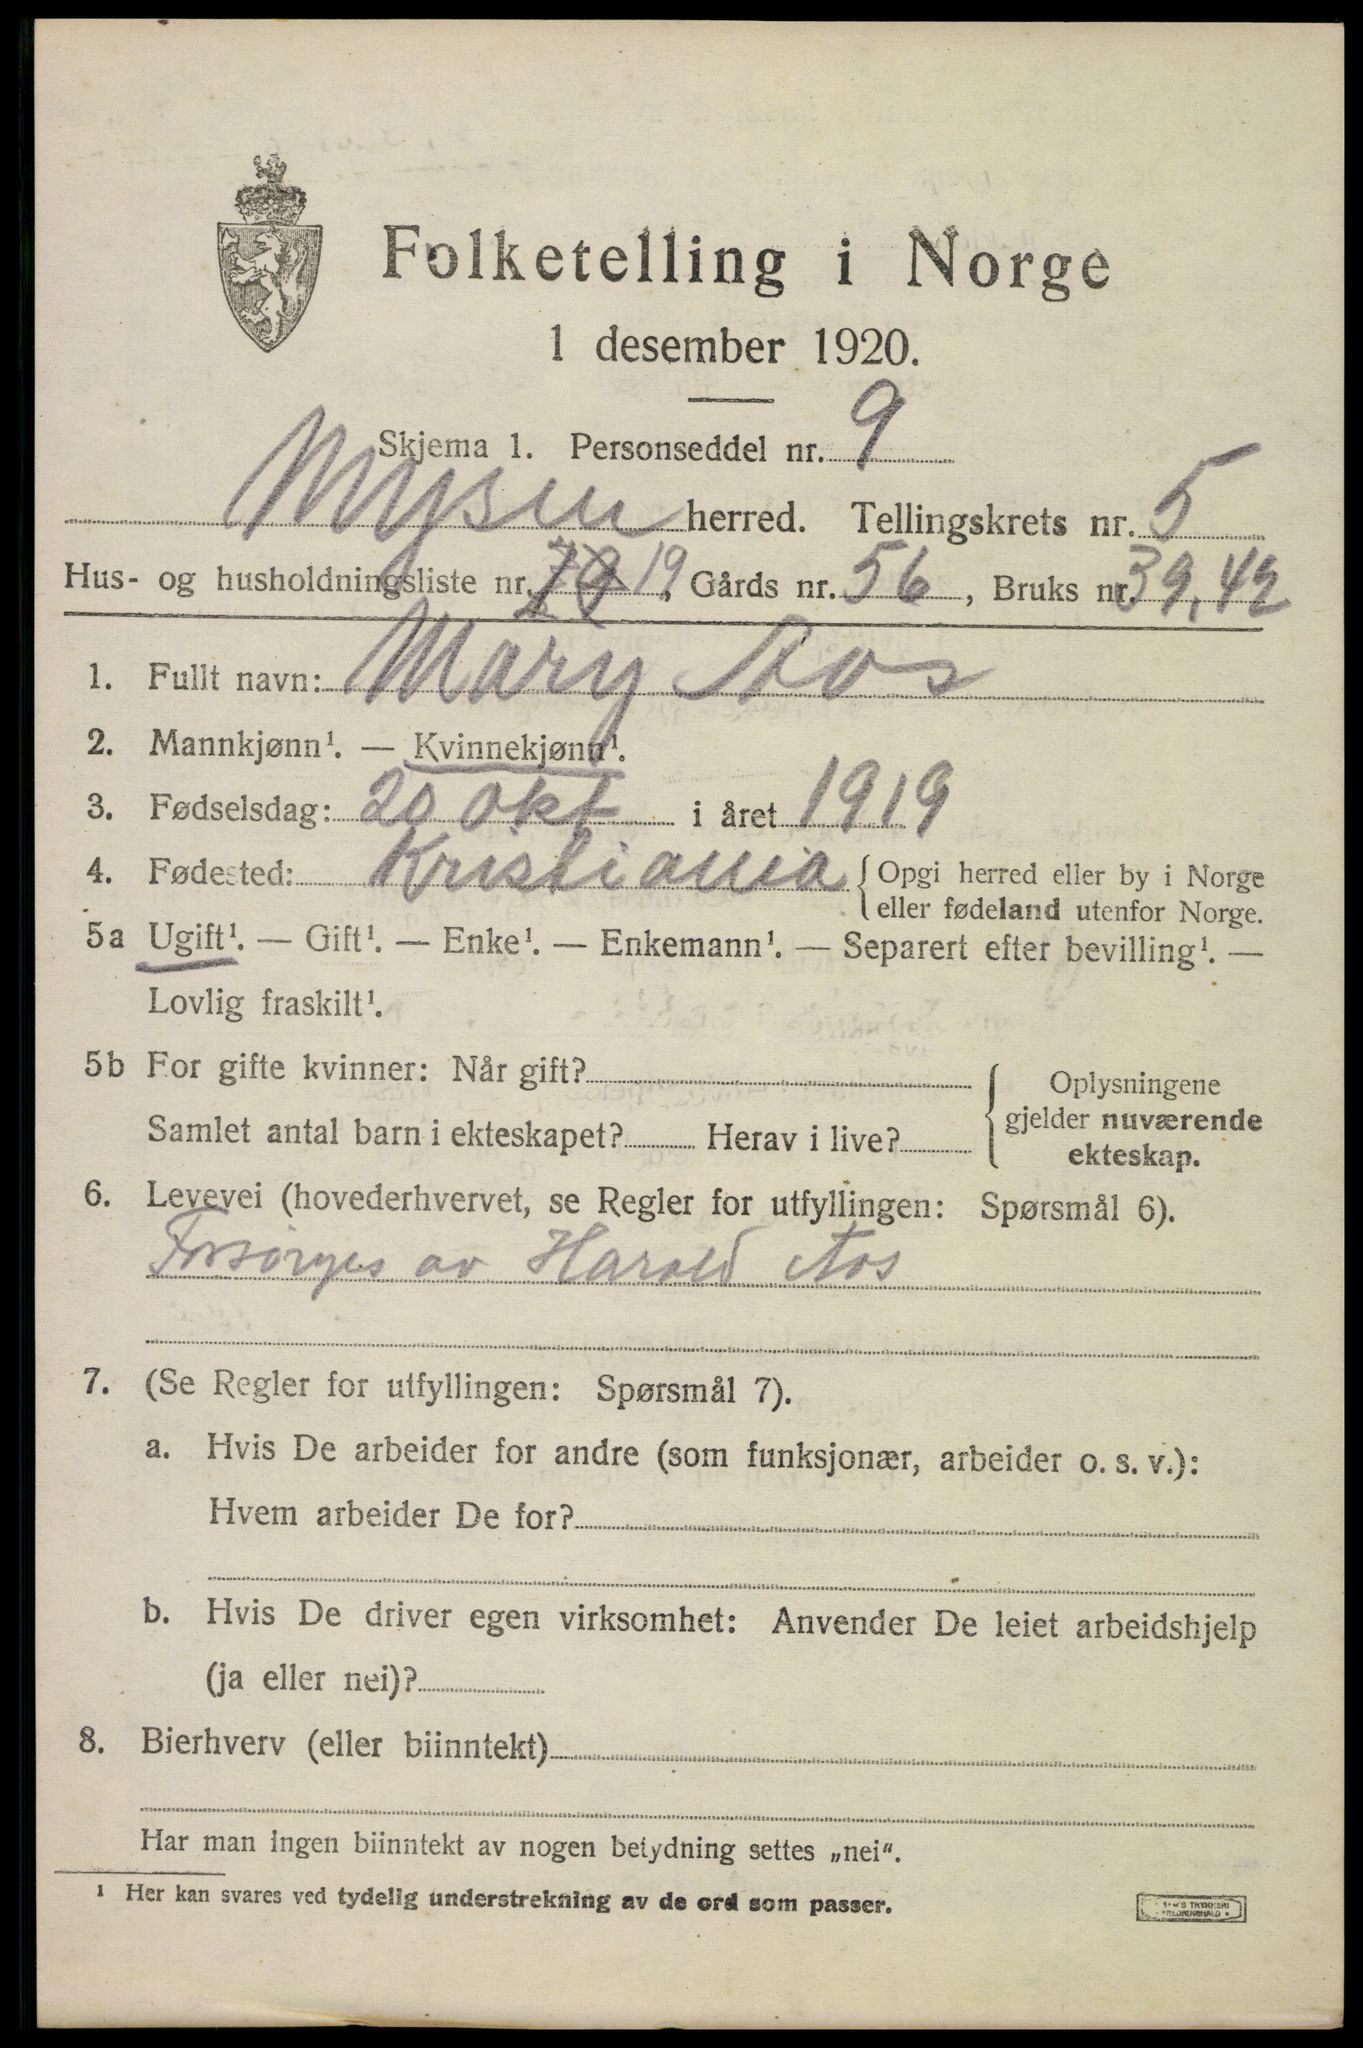 Folketelling i Norge
1 desember 1920.
Skjema 1. Personseddel nr. 9
Mysen herred. Tellingskrets nr. 5
Hus- og husholdningsliste nr. 19, Gårds nr. 56, Bruks nr. 39,42
1. Fullt navn: Mary Aos
2. Mannkjønn¹. — Kvinnekjønn¹.
3. Fødselsdag: 20 Okt i året 1919
4. Fødested: Kristiania { Opgi herred eller by i Norge
eller fødeland utenfor Norge.
5a Ugift¹. — Gift¹. — Enke¹. — Enkemann¹. — Separert efter bevilling¹. —
Lovlig fraskilt¹.
5b For gifte kvinner: Når gift?
Samlet antal barn i ekteskapet? Herav i live?
Oplysningene
gjelder nuværende
ekteskap.
6. Levevei (hovederhvervet, se Regler for utfyllingen: Spørsmål 6).
Forsørges av Harald Aos
7. (Se Regler for utfyllingen: Spørsmål 7).
a. Hvis De arbeider for andre (som funksjonær, arbeider o. s. v.):
Hvem arbeider De for?
b. Hvis De driver egen virksomhet: Anvender De leiet arbeidshjelp
(ja eller nei)?
8. Bierhverv (eller biinntekt)
Har man ingen biinntekt av nogen betydning settes „nei".
¹ Her kan svares ved tydelig understrekning av de ord som passer.